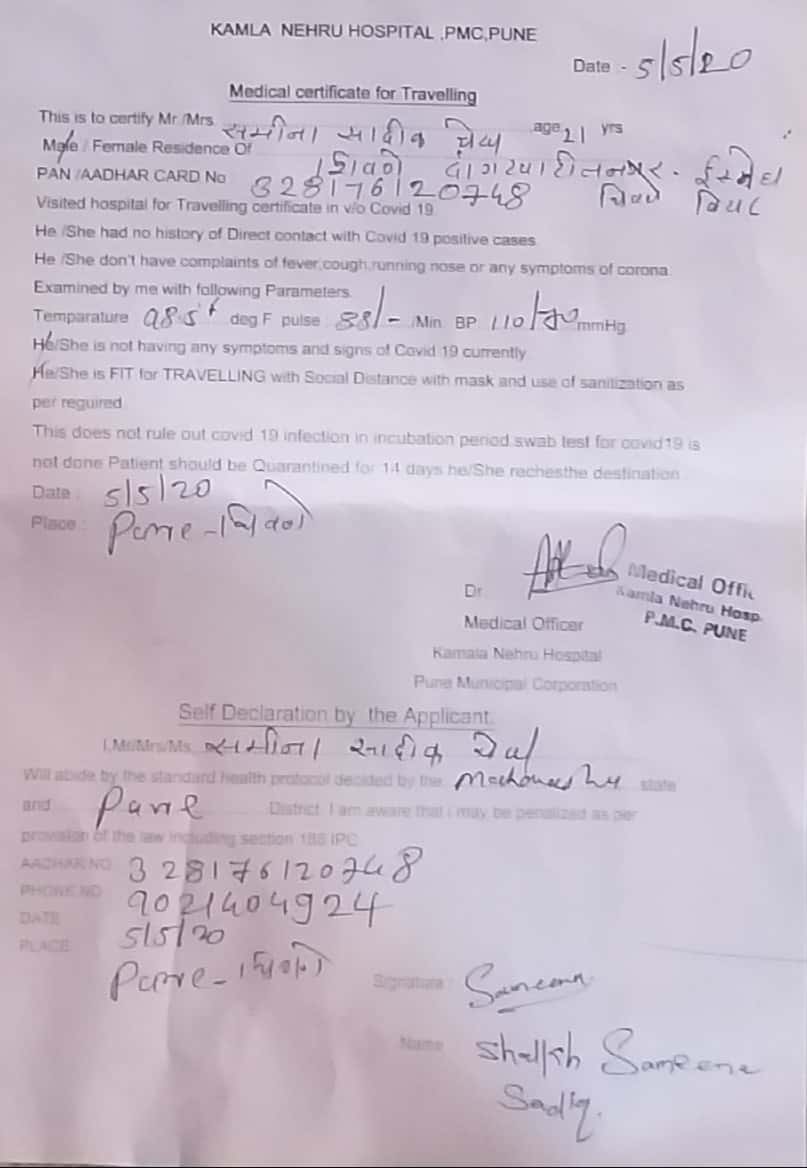 KAMLA NEHRU HOSPITAL ,PMC,PUNE
Date - 5/5/20
Medical certificate for Travelling
This is to certify Mr./Mrs. समीना सादीक शेख age 21 yrs
Male / Female Residence Of
PAN /AADHAR CARD No 328176120748
Visited hospital for Travelling certificate in v/o Covid 19.
He /She had no history of Direct contact with Covid 19 positive cases.
He /She don't have complaints of fever,cough,running nose or any symptoms of corona.
Examined by me with following Parameters.
Temparature 98.5 f deg F pulse 88/- /Min BP 110/70 mmHg.
He/She is not having any symptoms and signs of Covid 19 currently.
He/She is FIT for TRAVELLING with Social Distance with mask and use of sanitization as
per reguired.
This does not rule out covid 19 infection in incubation period.swab test for covid19 is
not done Patient should be Quarantined for 14 days he/She rechesthe destination.
Date : 5/5/20
Place : Pune -
Dr.
Medical Offic
Kamla Nehru Hosp.
P.M.C. PUNE
Medical Officer
Kamala Nehru Hospital
Pune Municipal Corporation
Self Declaration by the Applicant.
I,Mr/Mrs/Ms. समीना सादीक शेख
Will abide by the standard health protocol decided by the state
and Pune District. I am aware that i may be penalized as per
provision of the law including section 188 IPC
AADHAR NO 328176120748
PHONE NO 9021404924
DATE 5/5/20
PLACE Pune -
Signature : Sameena
Name Shaikh Sameena
Sadiq.